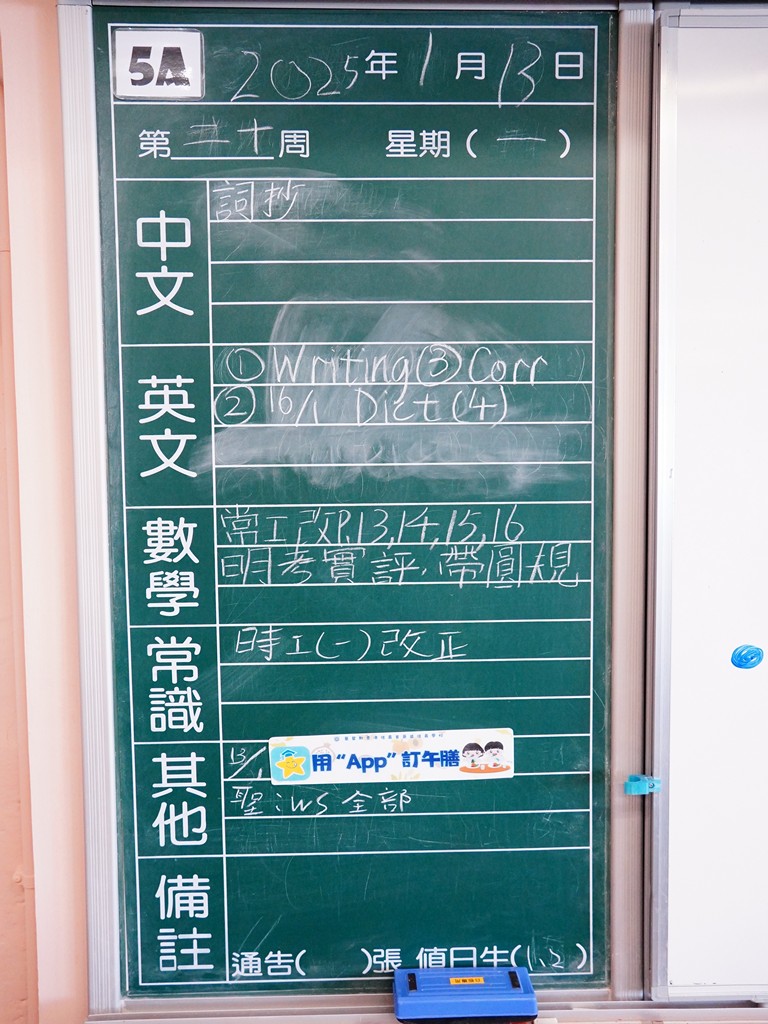 5A 2025年1月13日
第二十周 星期(一)
中文
詞抄
英文
① Writing(3) Corr
② 16/1 Dict (4)
數學
常工改P.13,14,15,16
明考實評,帶圓規
常識
時工(一)改正
其他
13/1 用“App”訂午膳
聖:WS 全部
備註
通告( )張 值日生(1,2)